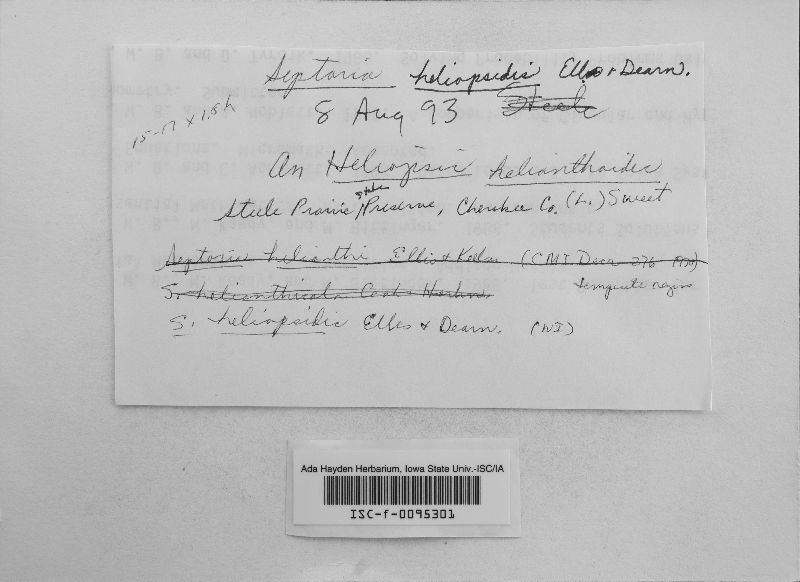 Septoria heliopsidis Ell. & Dearn.
8 Aug 93 Steele
15-17 x 1.5 h
On Heliopsis helianthoides
Steele Prairie State Preserve, Cherokee Co. (L.) Sweet
Septoria helianthi Ellis & Kell (CMI Descr 276 1970)
S. helianthicola Cooke Harkn. temperate region
S. heliopsidis Elles & Dearn. (WI)
Ada Hayden Herbarium, Iowa State Univ.-ISC/IA
ISC-f-0095301